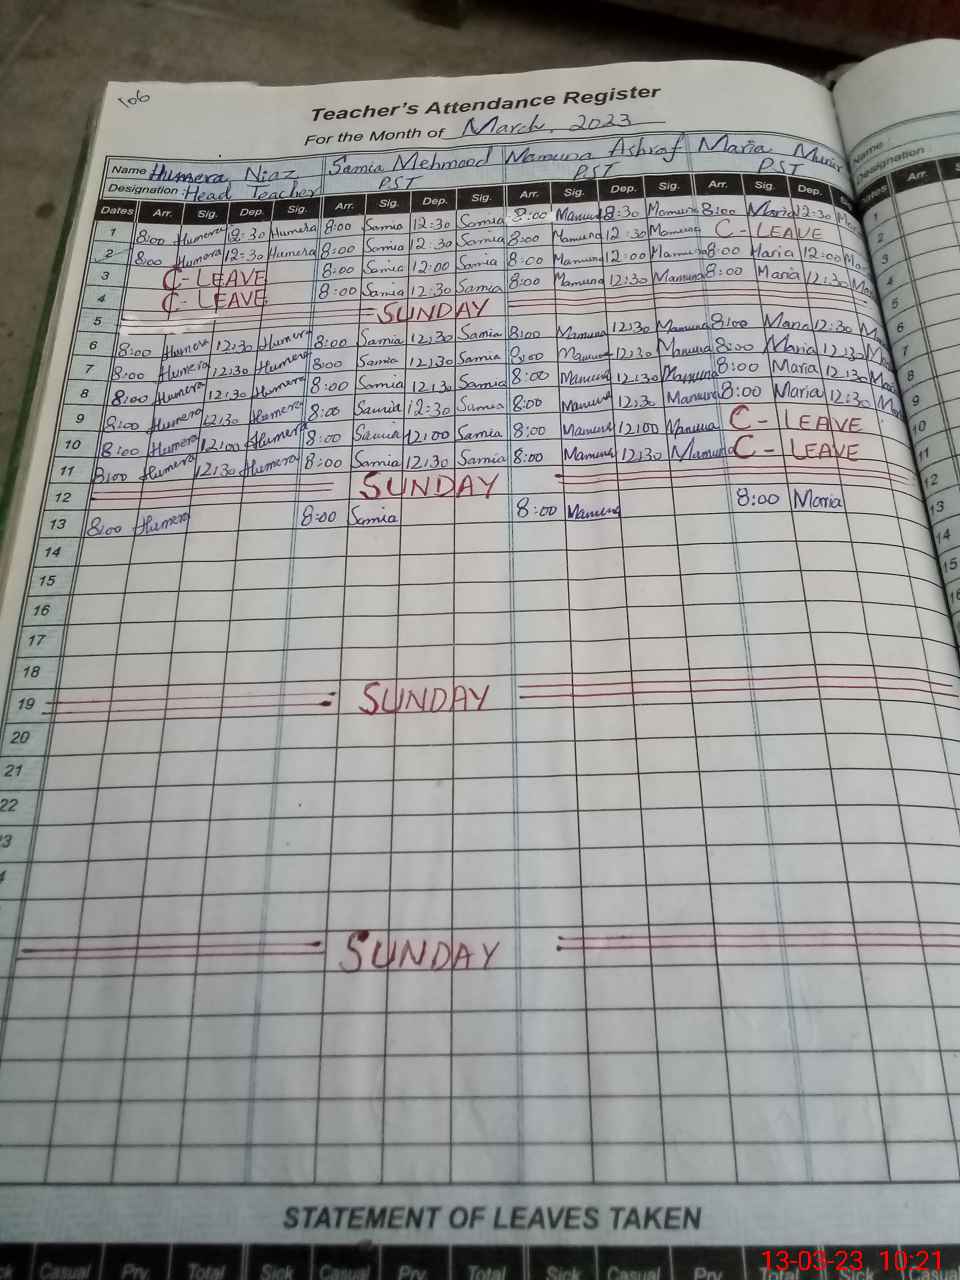 106
Teacher's Attendance Register
For the Month of March, 2023
Name Humera Niaz Samia Mehmood Mamuna Ashraf Maria Munir Name
Designation Head Teacher PST PST PST Designation
Dates Arr. Sig. Dep. Sig. Arr. Sig. Dep. Sig. Arr. Sig. Dep. Sig. Arr. Sig. Dep. Arr.
1 8:00 Humera 12:30 Humera 8:00 Samia 12:30 Samia 8:00 Mamuna 8:30 Mamuna 8:00 Maria 12:30 1
2 8:00 Humera 12:30 Humera 8:00 Samia 12:30 Samia 8:00 Mamuna 12:30 Mamuna C-LEAVE 2
3 C-LEAVE 8:00 Samia 12:00 Samia 8:00 Mamuna 12:00 Mamuna 8:00 Maria 12:00 3
4 C-LEAVE 8:00 Samia 12:30 Samia 8:00 Mamuna 12:30 Mamuna 8:00 Maria 12:30 4
5 SUNDAY 5
6 8:00 Humera 12:30 Humera 8:00 Samia 12:30 Samia 8:00 Mamuna 12:30 Mamuna 8:00 Maria 12:30 6
7 8:00 Humera 12:30 Humera 8:00 Samia 12:30 Samia 8:00 Mamuna 12:30 Mamuna 8:00 Maria 12:30 7
8 8:00 Humera 12:30 Humera 8:00 Samia 12:30 Samia 8:00 Mamuna 12:30 Mamuna 8:00 Maria 12:30 8
9 8:00 Humera 12:30 Humera 8:00 Samia 12:30 Samia 8:00 Mamuna 12:3 Mamuna 8:00 Maria 12:30 9
10 8:00 Humera 12:00 Humera 8:00 Samia 12:00 Samia 8:00 Mamuna 12:00 Mamuna C-LEAVE 10
11 8:00 Humera 12:30 Humera 8:00 Samia 12:30 Samia 8:00 Mamuna 12:30 Mamuna C-LEAVE 11
12 SUNDAY 12
13 8:00 Humera 8:00 Samia 8:00 Mamuna 8:00 Maria 13
14 14
15 15
16
17
18
19 SUNDAY
20
21
22
SUNDAY
STATEMENT OF LEAVES TAKEN
Casual Prv Total Sick Casual Prv Total Sick Casual Prv Total Sick Casual
13-03-23 10:21